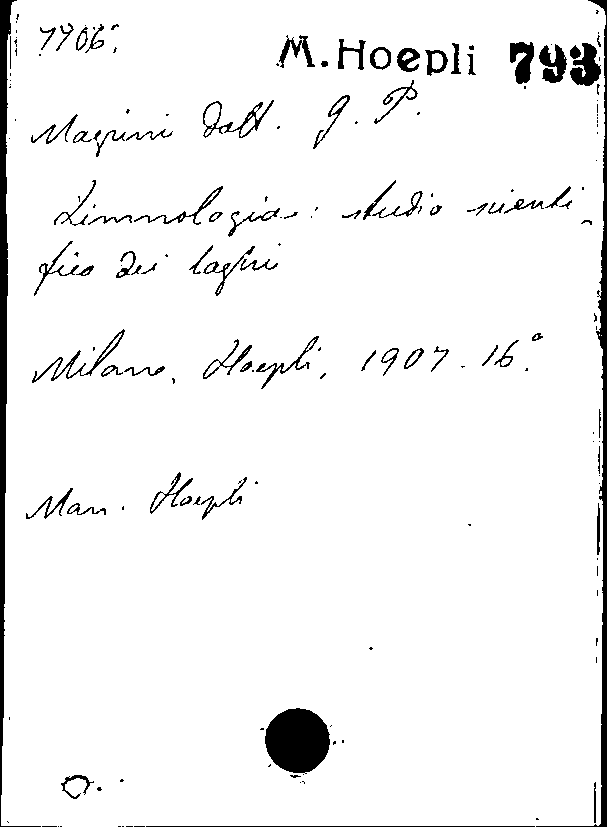 7906.
M. Hoepli 793
Magrini Dott. G. P.
Limnologia: studio scienti-
fico dei laghi
Milano, Hoepli, 1907. 16.°
Man. Hoepli